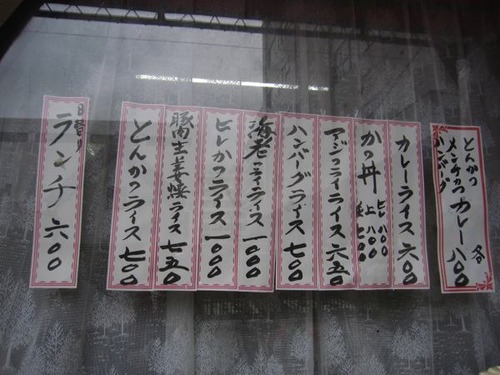 とんかつ
メンチカツ
ハンバーグ
カレー各八〇〇
カレーライス六〇〇
かつ丼
ヒレ八〇〇
上八〇〇
アジフライライス六五〇
ハンバーグライス七〇〇
海老フライライス一〇〇〇
ヒレかつライス一〇〇〇
豚肉生姜焼ライス七五〇
とんかつライス七〇〇
日替り
ランチ六〇〇